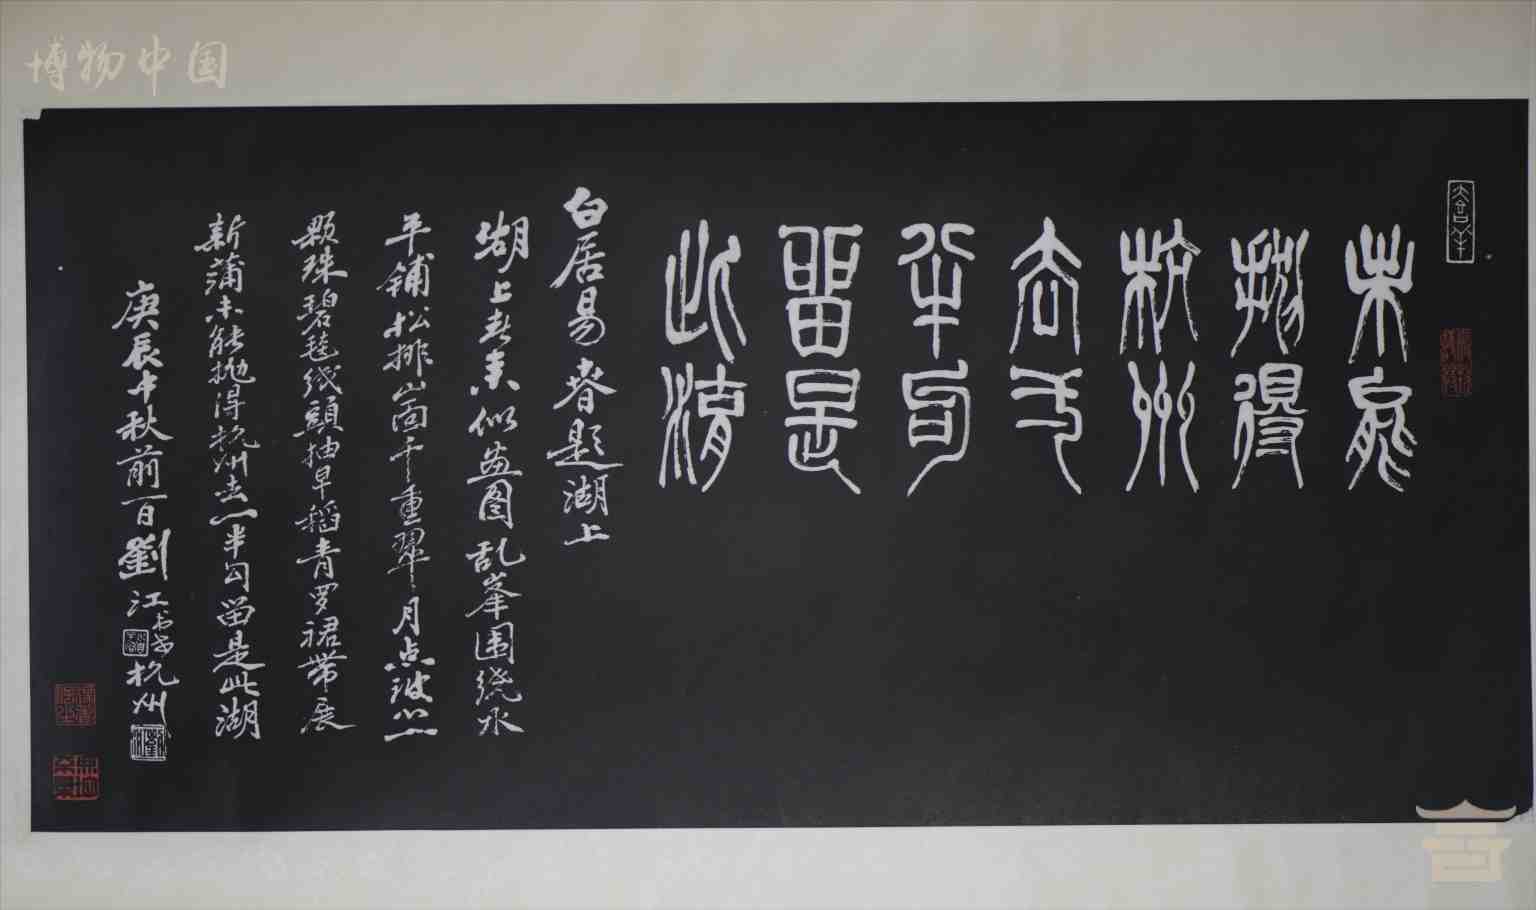 博物中国
未能
抛得
杭州
去一
半勾
留是
此湖
白居易春题湖上
湖上春来似画图乱峯围绕水
平铺松排山面千重翠月点波心一
颗珠碧毯线頭抽早稻青罗裙带展
新蒲未能抛得杭州去一半勾留是此湖
庚辰中秋前一日劉江书于杭州